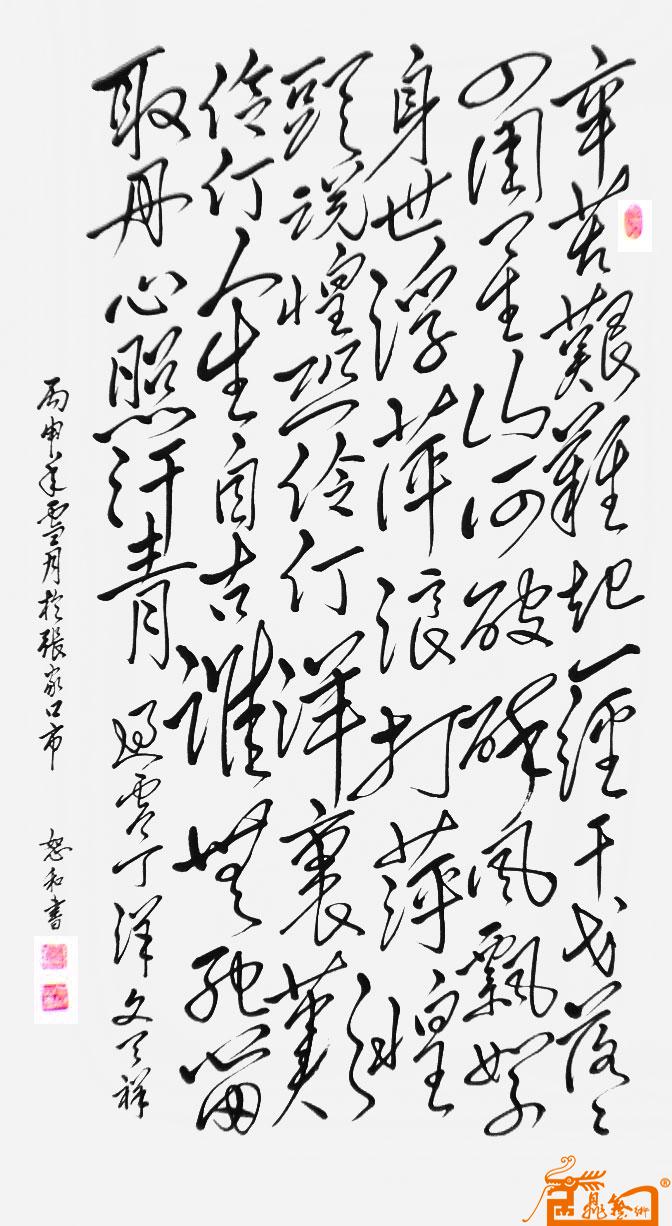 辛苦艱難起一經干戈落々
四周星山河破碎風飄絮
身世浮萍浪打萍惶
頭說惶恐伶仃洋裏歎
伶仃人生自古誰無死留
取丹心照汗青 過零丁洋 文天祥
丙申年雪月於張家口市 恕和書